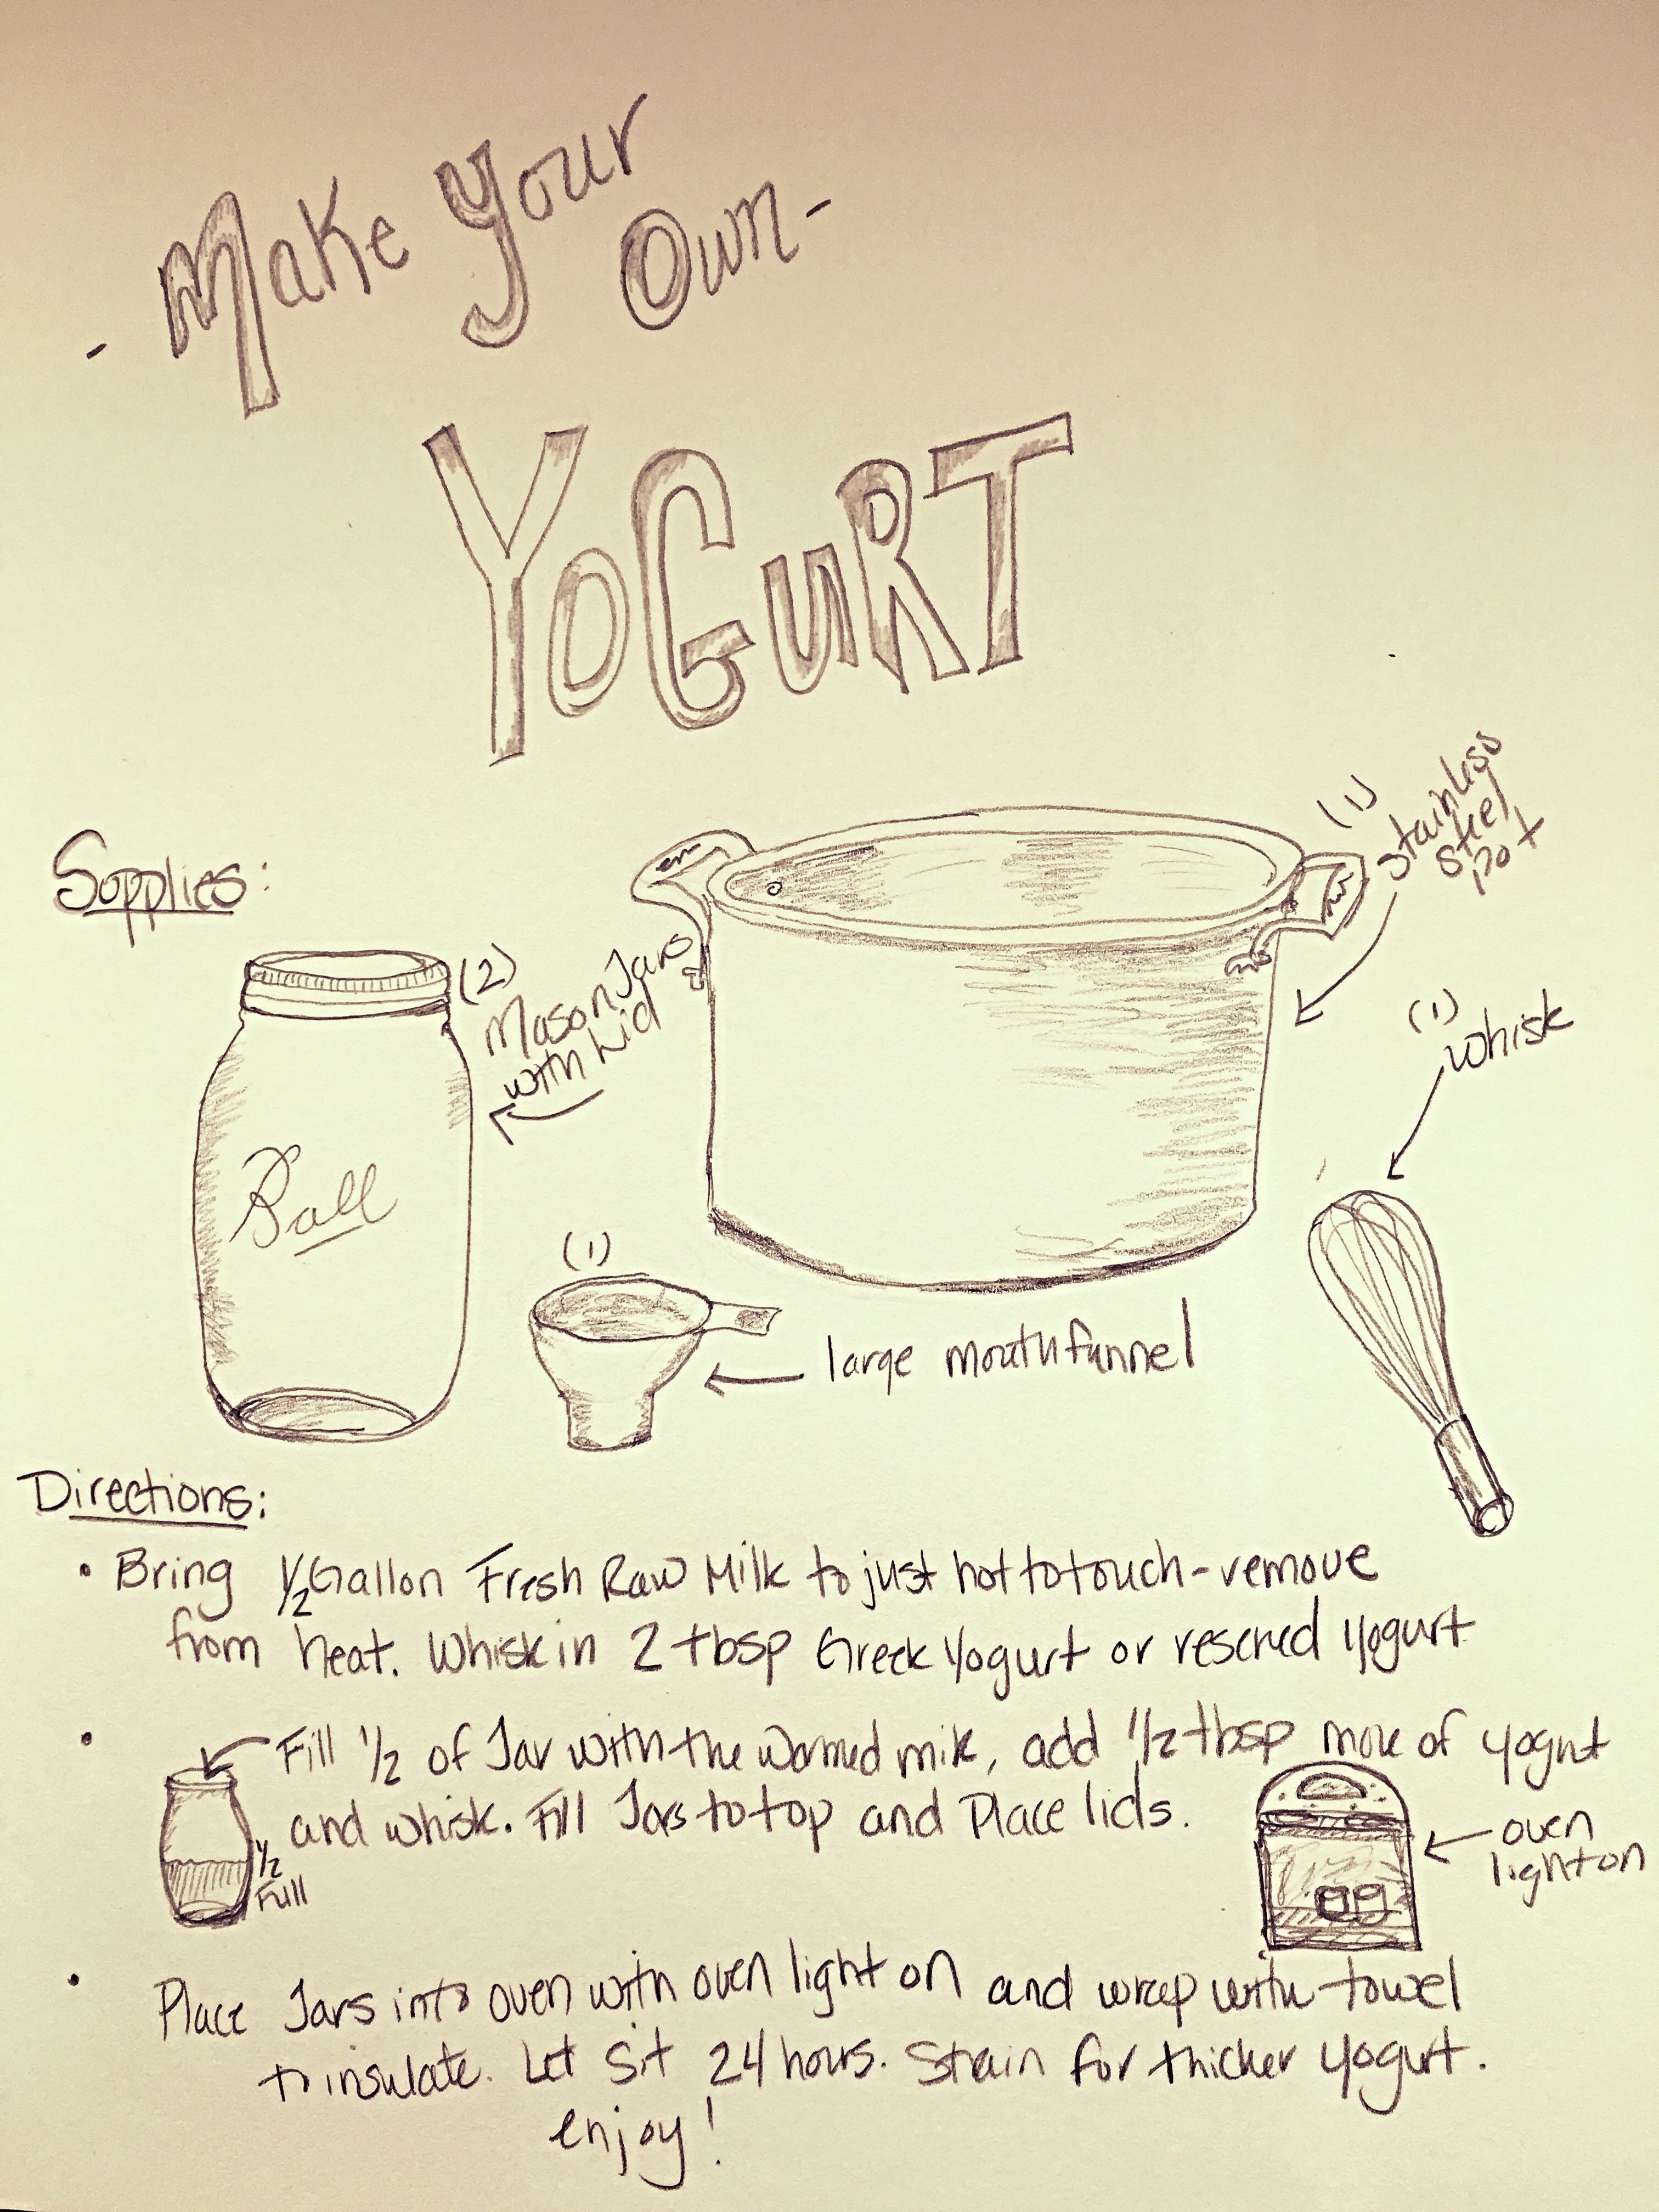 - Make Your
Own -
YOGURT
Supplies:
(1)
Stainless
Steel
pot
(2)
Mason Jars
with Lid
(1)
Whisk
Ball
(1)
large mouth funnel
Directions:
• Bring 1/2 Gallon Fresh Raw Milk to just hot to touch - remove
from heat. Whisk in 2 tbsp Greek Yogurt or reserved Yogurt
• Fill 1/2 of Jar with the warmed milk, add 1/2 tbsp more of yogurt
and whisk. Fill Jars to top and Place lids.
1/2
Full
oven
light on
• Place Jars into oven with oven light on and wrap with towel
to insulate. Let Sit 24 hours. Strain for thicker yogurt.
enjoy!